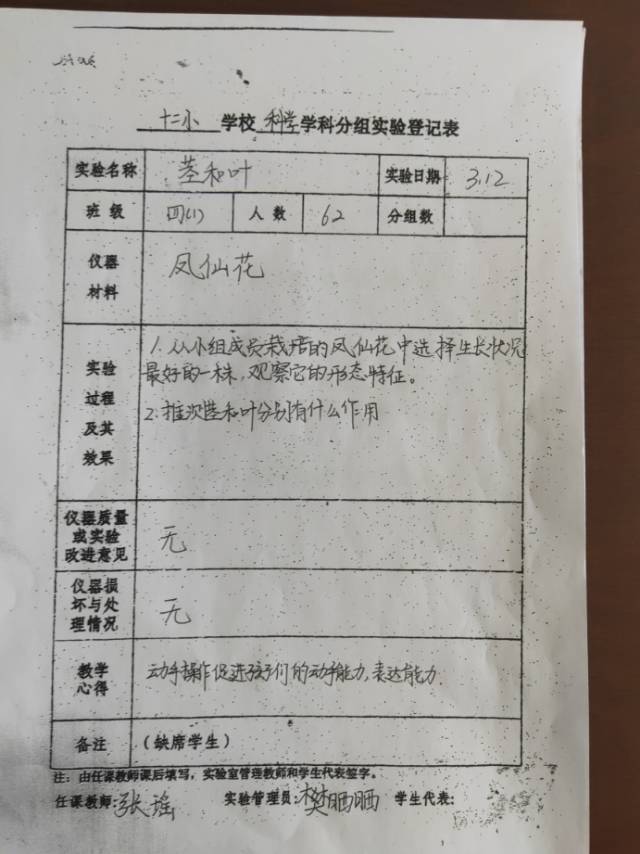 十二小 学校 科学 学科分组实验登记表
实验名称 茎和叶 实验日期 3.12
班级 四(1) 人数 62 分组数
仪器材料 凤仙花
实验过程及其效果
1. 从小组成员栽培的凤仙花中选择生长状况
最好的一株,观察它的形态特征。
2. 推次茎和叶分别有什么作用
仪器质量或实验改进意见 无
仪器损坏与处理情况 无
教学心得 动手操作促进孩子们的动手能力,表达能力.
备注 (缺席学生)
注:由任课教师课后填写,实验室管理教师和学生代表签字。
任课教师:张瑶 实验管理员:樊晒晒 学生代表: